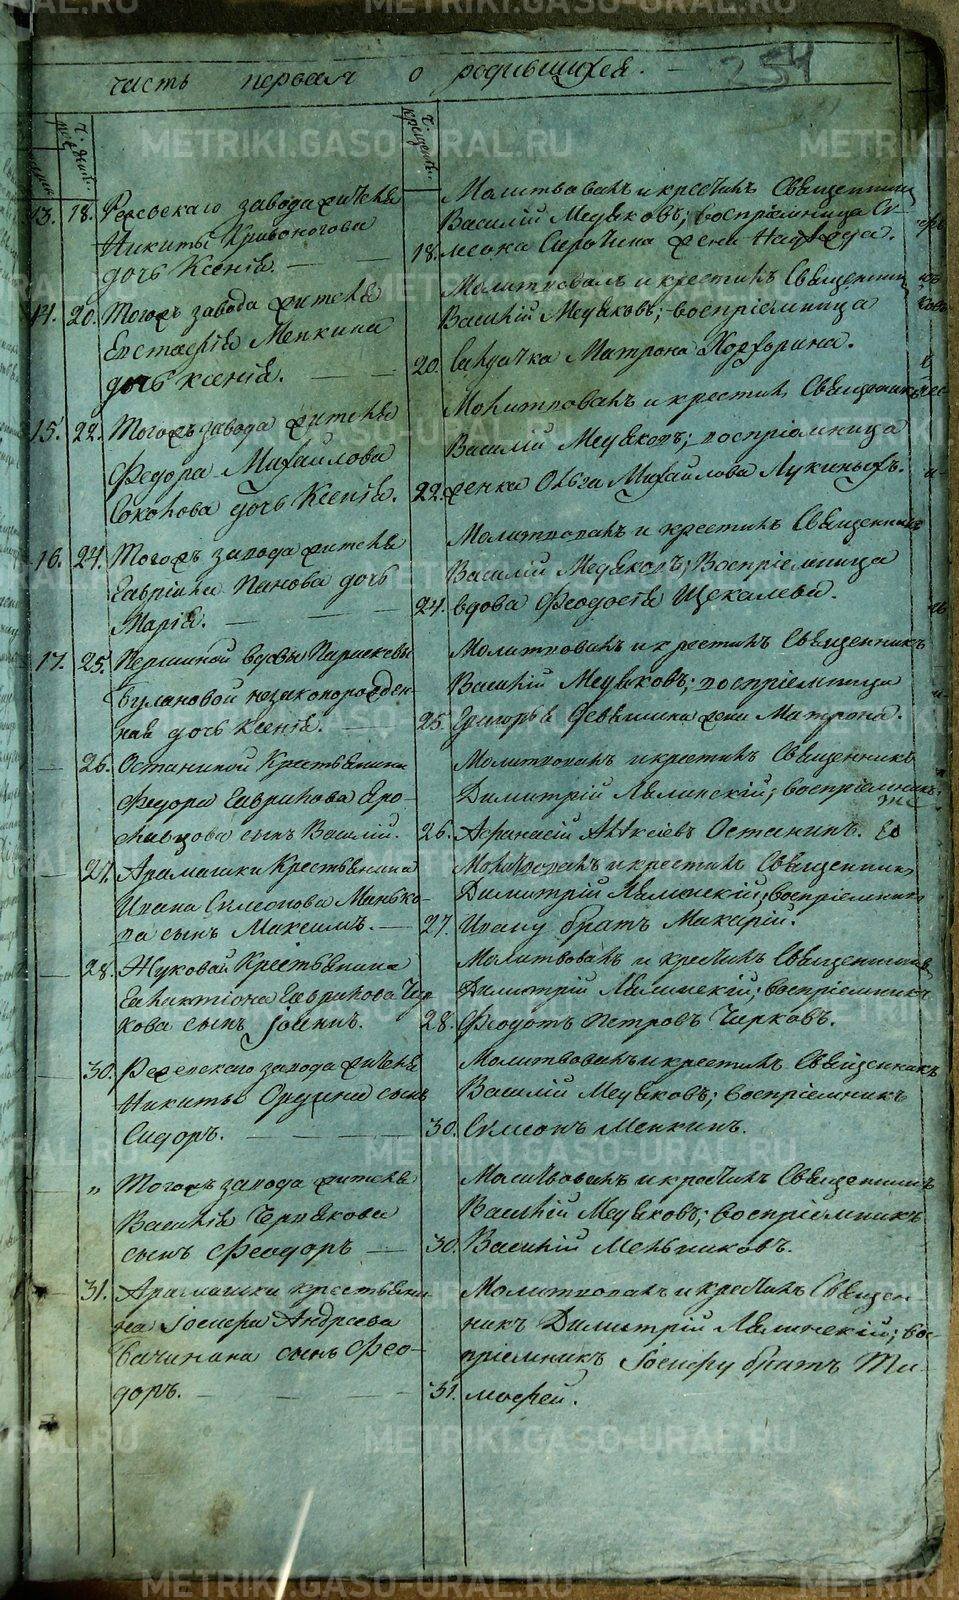 часть первая о родившихся.
254
13. 18. Режевскаго завода жителя
Никиты Кривоногова
дочь Ксенія.
Молитвовалъ и крестилъ Священникъ
Василій Медяковъ; воспріемница Си-
18. меона Сирочина жена Надежда.
14. 20. Тогожъ завода жителя
Евстафія Мѣнкина
дочь Ксенія.
Молитвовалъ и крестилъ Священник
Василій Медяковъ; воспріемница
20. Матрона
15. 22. Тогожъ завода жителя
Федора Михайлова
Соколова дочь Ксенія.
Молитвовалъ и крестилъ Священникъ
Василій Медяковъ; воспріемница
22. женка Ольга Михайлова Лукиныхъ.
16. 24. Тогожъ завода жителя
Гавріила Панова дочь
Марія.
Молитвовалъ и крестилъ Священникъ
Василій Медяковъ; Воспріемница
24. вдова Феодосія Щекалева.
17. 25. Першиной вдовы Параскевы
Булановой незаконорожден-
ная дочь Ксенія.
Молитвовалъ и крестилъ Священникъ
Василій Медяковъ; воспріемница
25. Григорья Девяшина жена Матрона.
26. Останиной Крестьянина
Федора Гаврилова Яро-
славцова сынъ Василій.
Молитвовалъ и крестилъ Священникъ
Димитрій Лялинскій; воспріемникъ
26. Афанасій Алѣксіевъ Останинъ.
27. Арамашки Крестьянина
Ивана Симеонова Манько-
ва сынъ Максимъ.
Молитвовалъ и крестилъ Священник
Димитрій Лялинскій; воспріемникъ
27. Ивану братъ Макарій.
28. Жуковай Крестьянина
Галактіона Гаврилова Чер-
кова сынъ Іоаннъ.
Молитвовалъ и крестилъ Священникъ
Димитрій Лялинскій; воспріемникъ
28. Феодотъ Петровъ Черковъ.
30. Режевскаго завода жителя
Никиты Ордина сынъ
Сидоръ.
Молитвовалъ и крестилъ Священникъ
Василій Медяковъ; воспріемникъ
30. Симеонъ Мѣнкинъ.
„ Тогожъ завода жителя
Василія Чернякова
сынъ Феодоръ
Молитвовалъ и крестилъ Священникъ
Василій Медяковъ; воспріемникъ
30. Василій Мельниковъ.
31. Арамашки крестьяни-
на Іосифа Андреева
Бачинина сынъ Фео-
доръ.
Молитвовалъ и крестилъ Священ-
никъ Димитрій Лялинскій; вос-
пріемникъ Іосифу братъ Ти-
31. мофей.
METRIKI.GASO-URAL.RU